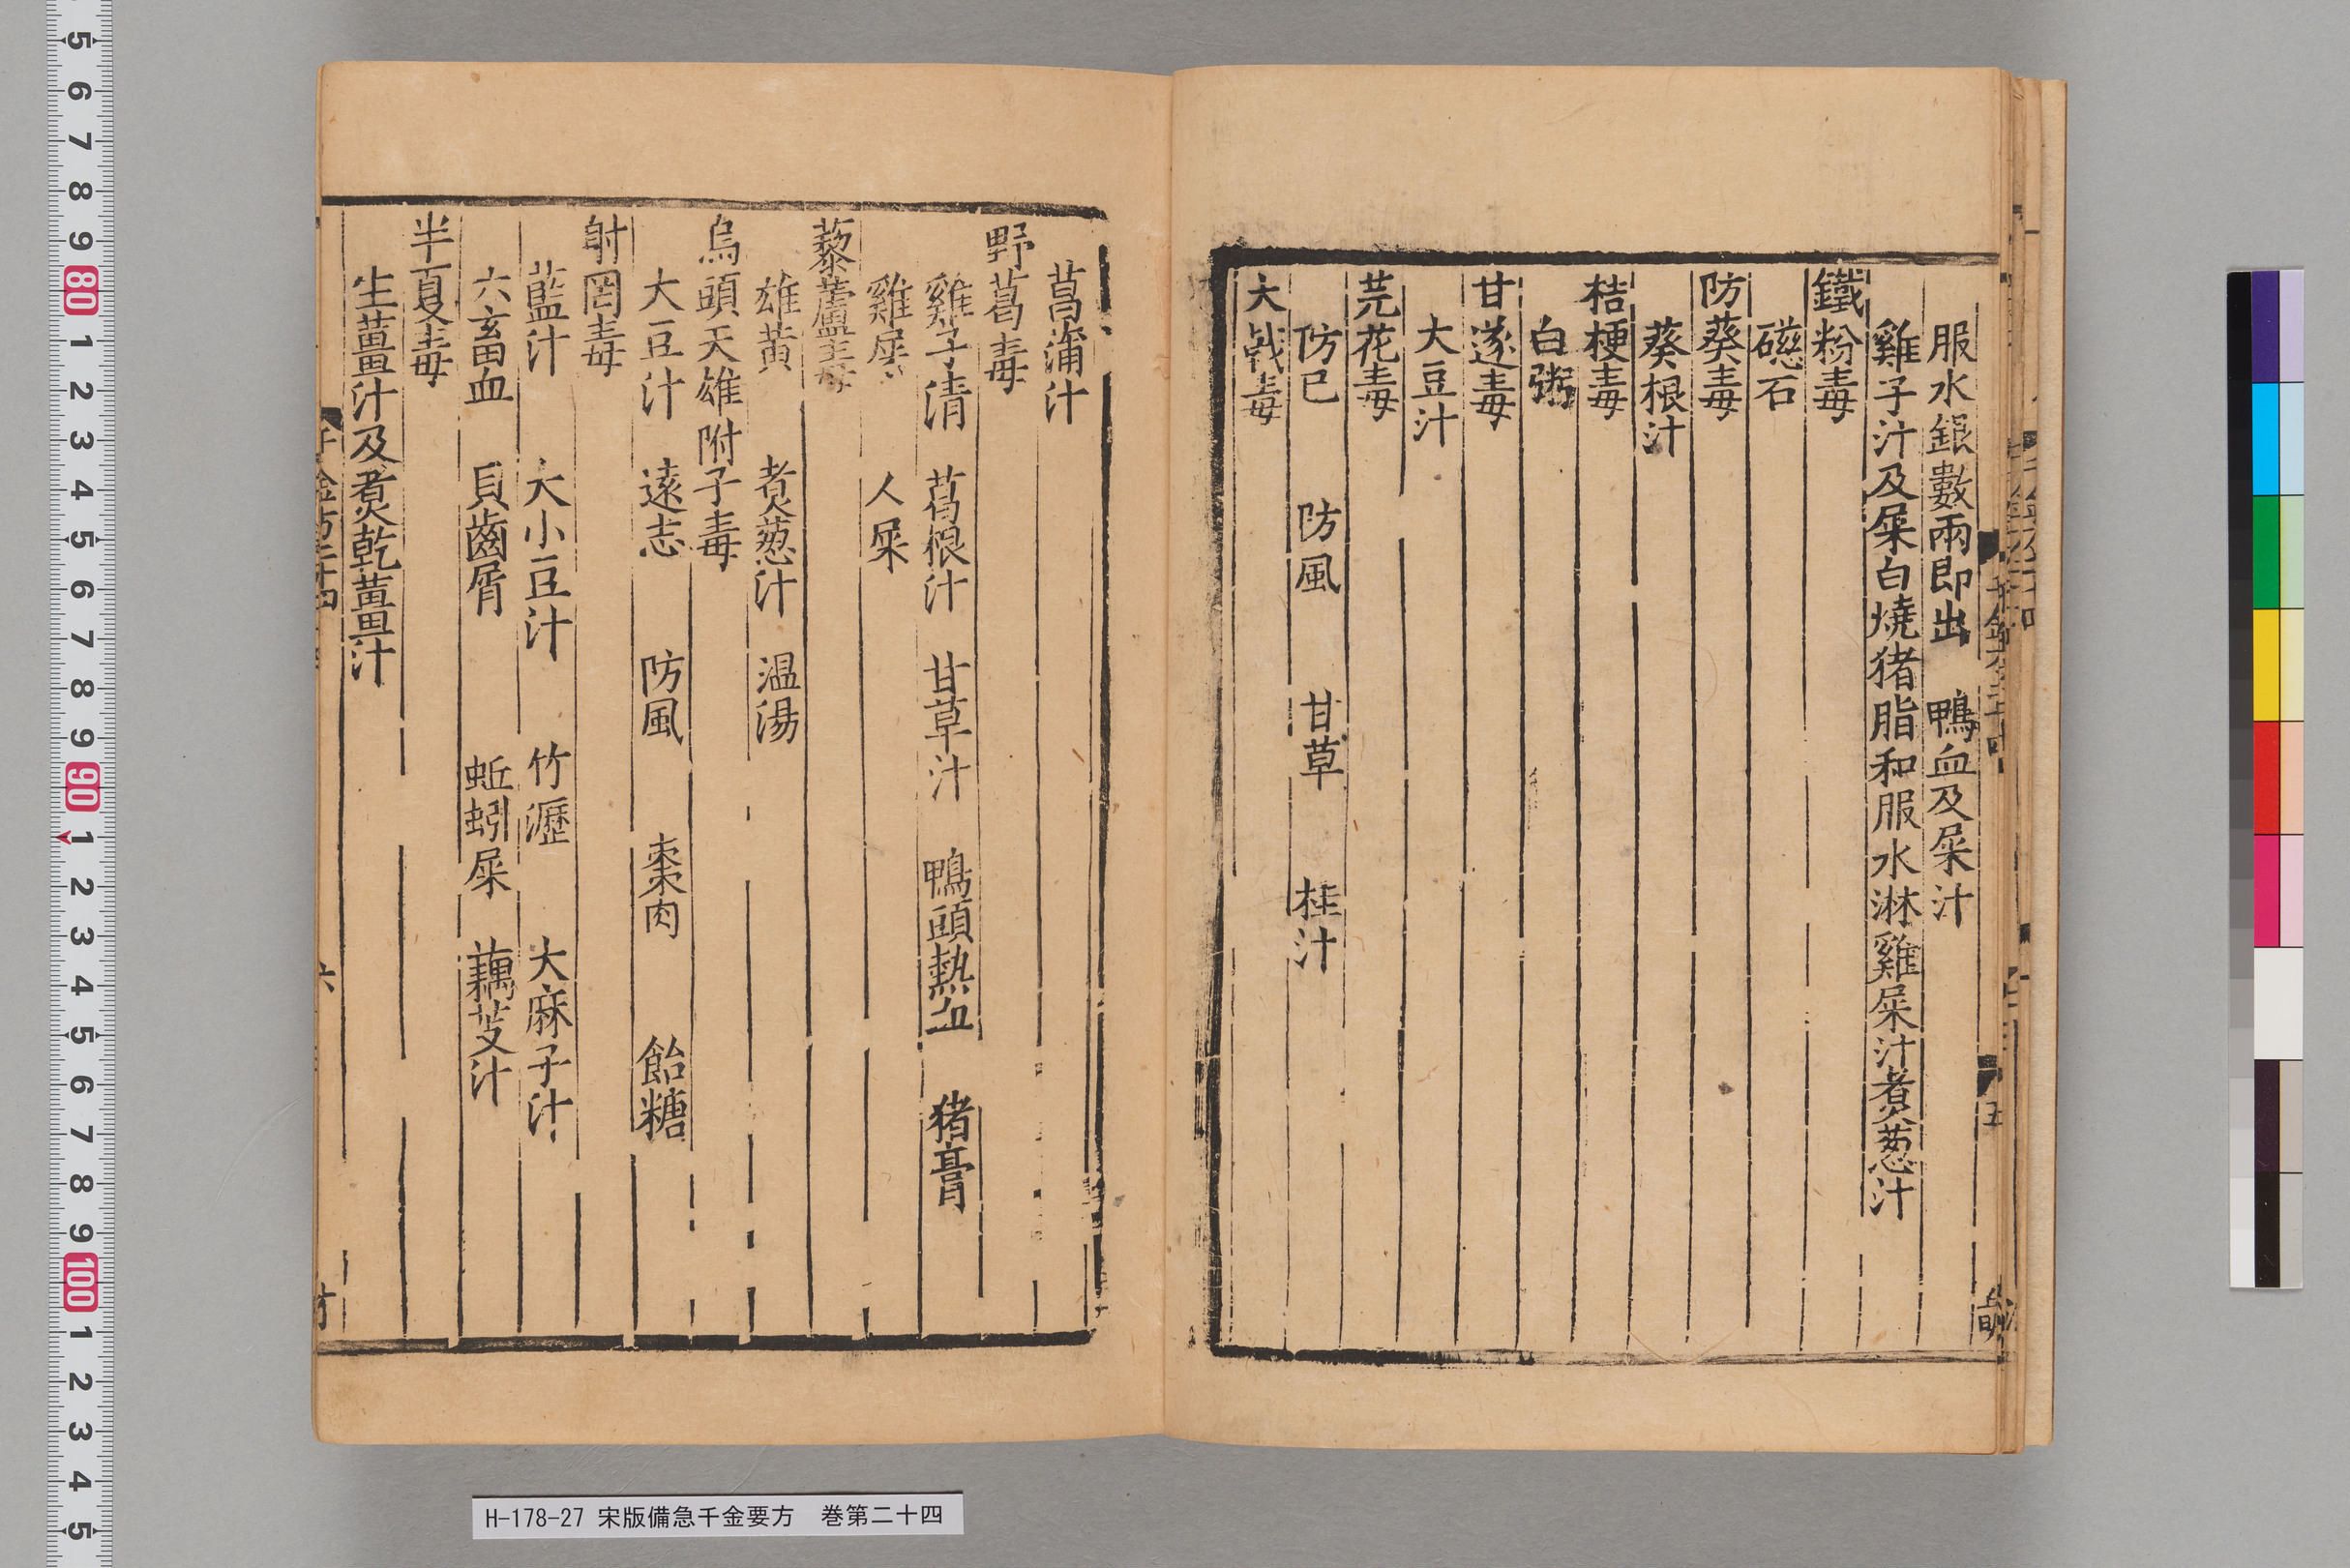 服水銀數兩即出　鴨血及屎汁
雞子汁及屎白燒猪脂和服水淋雞屎汁煮葱汁
鐵粉毒
磁石
防葵毒
葵根汁
桔梗毒
白粥
甘遂毒
大豆汁
芫花毒
防已　防風　甘草　桂汁
大戟毒
菖蒲汁
野葛毒
雞子清　葛根汁　甘草汁　鴨頭熱血　猪膏
雞屎　人屎
藜蘆毒
雄黃　煮葱汁　温湯
烏頭天雄附子毒
大豆汁　遠志　防風　棗肉　飴糖
射罔毒
藍汁　大小豆汁　竹瀝　大麻子汁
六畜血　貝齒屑　蚯蚓屎　藕芰汁
半夏毒
生薑汁及煮乾薑汁
千金方二十四
六
H-178-27 宋版備急千金要方　巻第二十四
5 6 7 8 9 80 1 2 3 4 5 6 7 8 9 90 1 2 3 4 5 6 7 8 9 100 1 2 3 4 5